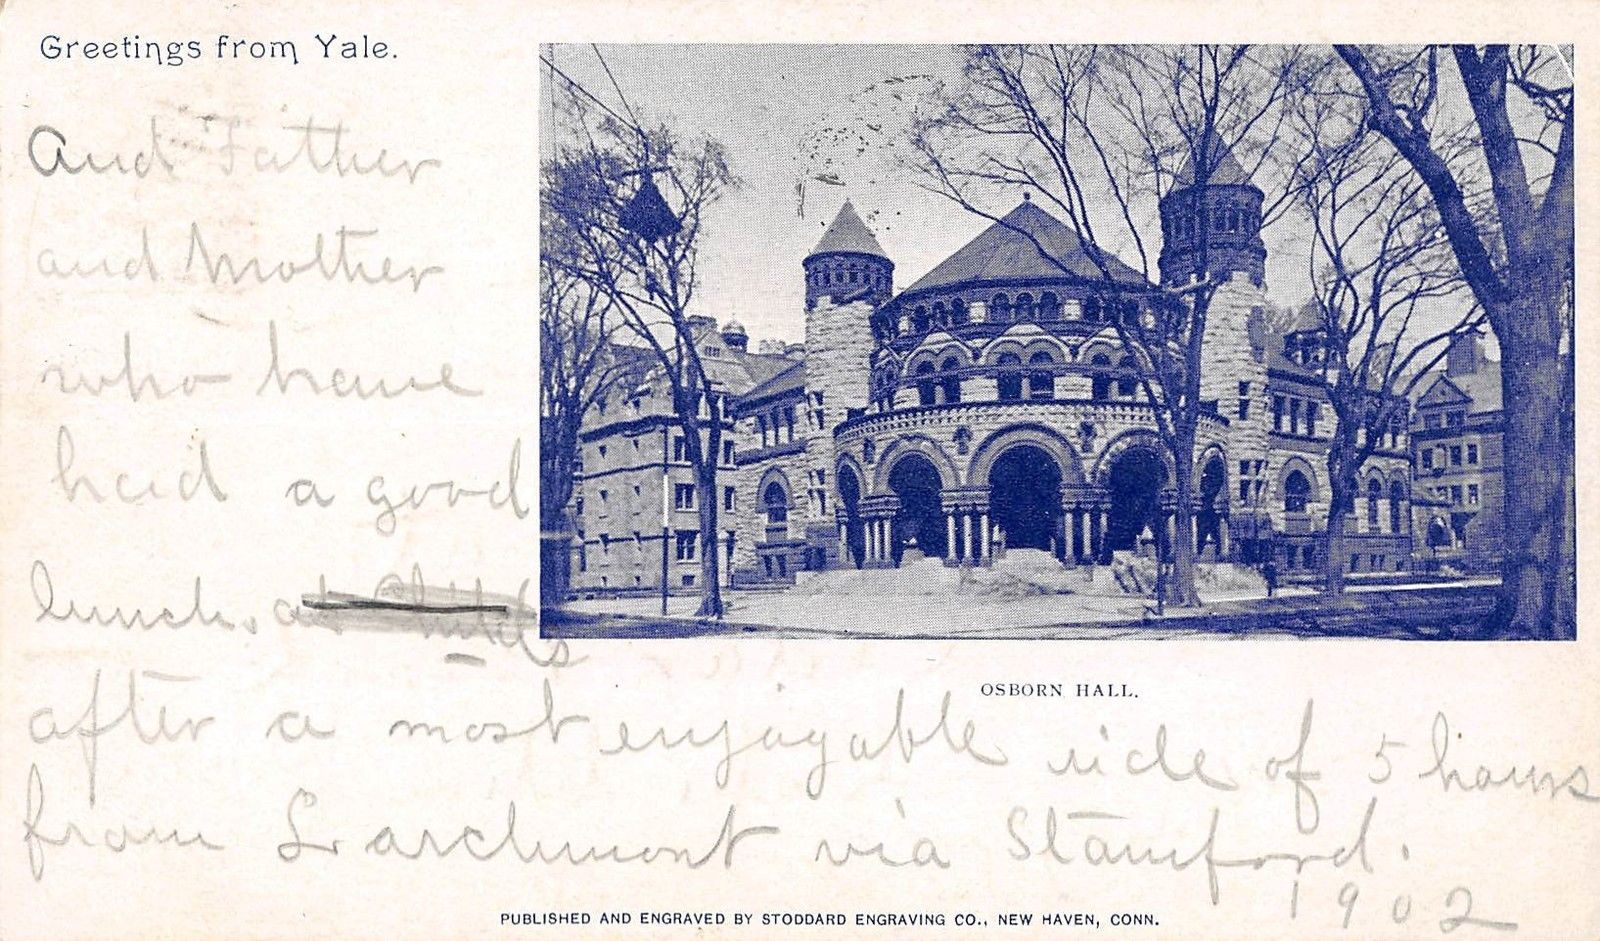 Greetings from Yale.
And Father
and Mother
who have
had a good
lunch. at Childs
after a most enjoyable ride of 5 hours
from Larchmont via Stamford.
1902
OSBORN HALL.
PUBLISHED AND ENGRAVED BY STODDARD ENGRAVING CO., NEW HAVEN, CONN.